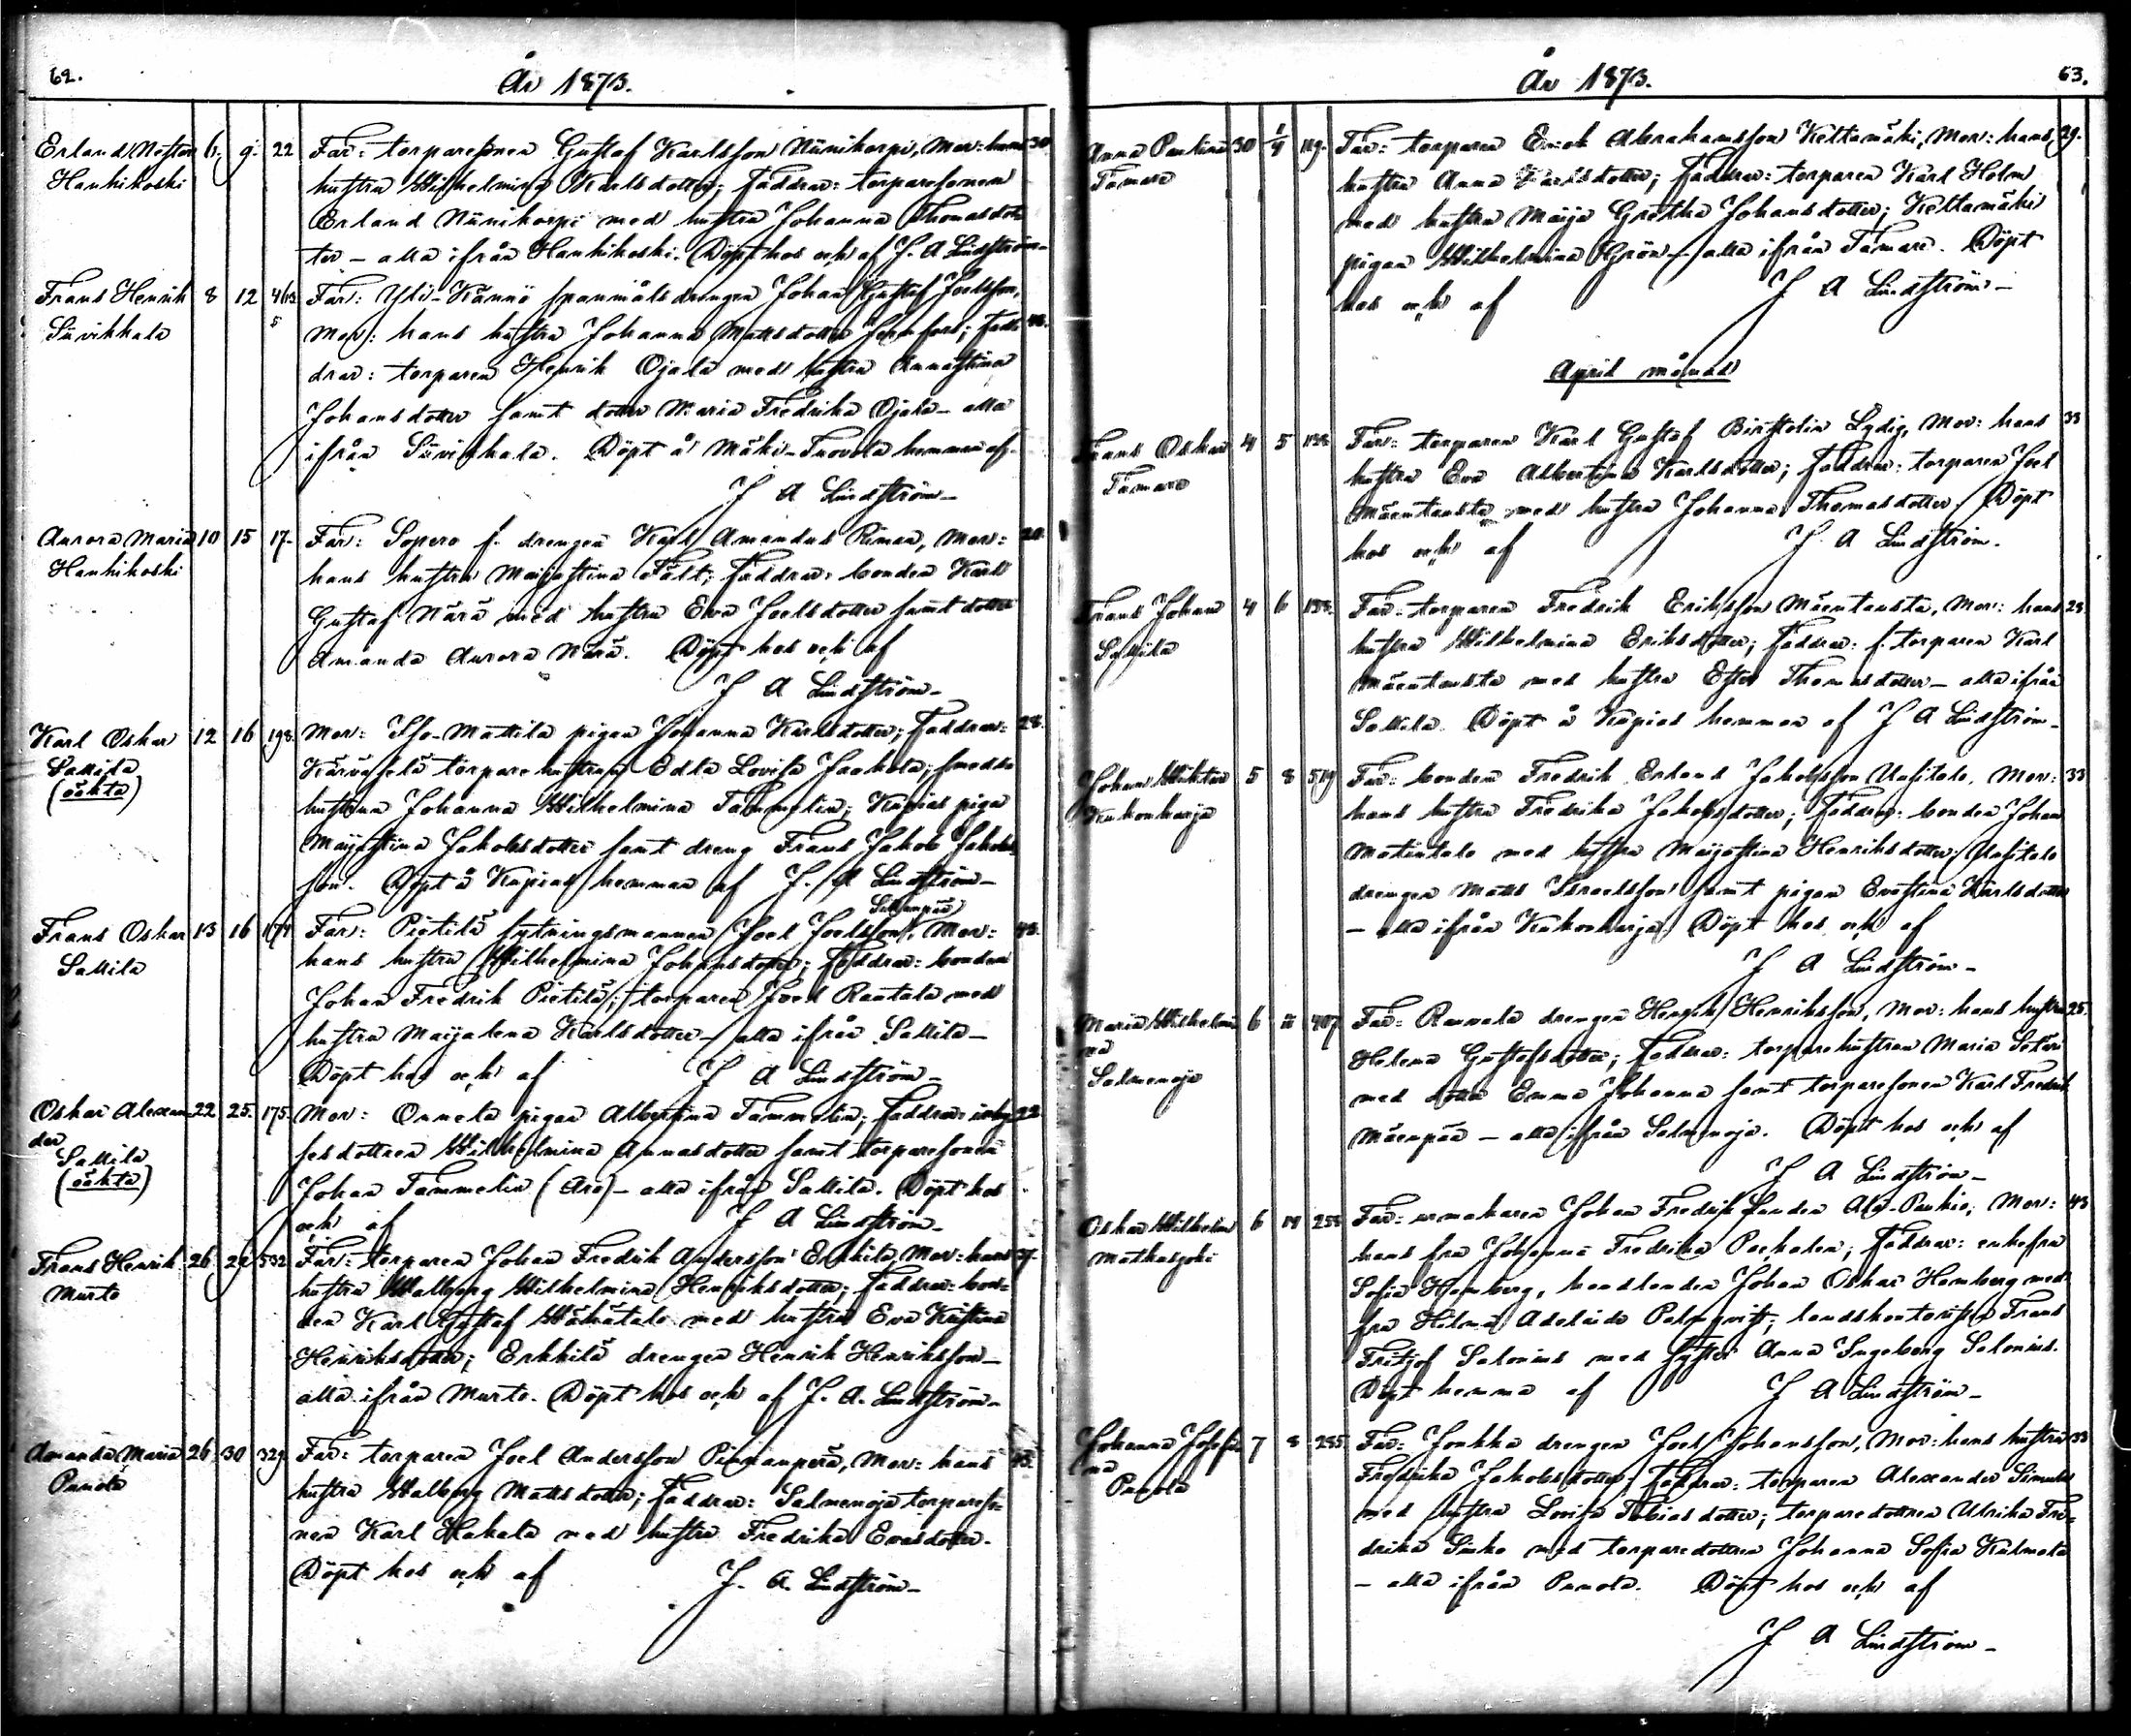 62.
År 1873.
Erland Nestor 6. 9. 22 Far: torparesonen Gustaf Karlsson Niinikorpi, Mor: hans 30
Hanhikoski hustru Wilhelmina Karlsdotter; faddrar: torparesonen
Erland Niinikorpi med hustru Johanna Thomasdot-
ter – alla ifrån Hanhikoski. Döpt hos och af J. A Lindström–
Frans Henrik 8 12 463 Far: Yli-Kännö spanmåls drengen Johan Gustaf Joelsson,
Siivikkala 5 Mor: hans hustru Johanna Mattsdotter; fad-
drar: torparen Henrik Ojala med hustru Annastina
Johansdotter samt dotter Maria Fredrika Ojala – alla
ifrån Siivikkala. Döpt å Mäki-Tuovola hemman af
J A Lindström–
Aurora Maria 10 15 17. Far: Sopero f. drengen Karl Amandus, Mor: 20
Hanhikoski hans hustru Maijastina Fält; faddrar: bonden Karl
Gustaf Närä med hustru Eva Joelsdotter samt dotter
Amanda Aurora Närä. Döpt hos och af
J A Lindström–
Karl Oskar 12 16 198. Mor: Iso-Mattila pigan Johanna Karlsdotter; faddrar: 28.
Sallila torpare hustrun Edla Lovisa Jaakola; smeds
(oäkta) hustrun Johanna Wilhelmina Tammelin; Kupias piga
Maijastina Jakobsdotter samt dreng Frans Jakob Jakobs-
son. Döpt å Kupias hemman af J. A Lindström–
Sillanpää
Frans Oskar 13 16 174 Far: Pietilä sytningsmannen Joel Joelsson, Mor: 43.
Sallila hans hustru Wilhelmina Johansdotter; faddrar: bonden
Johan Fredrik Pietilä; torparen Joel Rantala med
hustru Maijalena Karlsdotter – alla ifrån Sallila –
Döpt hos och af J A Lindström–
Oskar Alexan- 22 25. 175. Mor: Onnela pigan Albertina Tammelin; faddrar: inhy- 22
der sesdottren Wilhelmina Annasdotter samt torparesonen
Sallila Johan Tammelin (Aro) – alla ifrån Sallila. Döpt hos
(oäkta) och af J A Lindström–
Frans Henrik 26 29 532 Far: torparen Johan Fredrik Andersson Erkkilä, Mor: hans
Murto hustru Walborg Wilhelmina Henriksdotter; faddrar: bon-
den Karl Gustaf Wähätalo med hustru Eva Kristina
Henriksdotter; Erkkilä drengen Henrik Henriksson –
alla ifrån Murto. Döpt hos och af J. A. Lindström–
Amanda Maria 26 30 329. Far: torparen Joel Andersson Pirunperä, Mor: hans 45.
Punola hustru Walborg Mattsdotter; faddrar: Salmenoja torpareso-
nen Karl Hakala med hustru Fredrika Evasdotter.
Döpt hos och af J. A. Lindström–
År 1873. 63.
Anna Paulina 30 1/4 119. Far: torparen Erick Abrahamsson Keltamäki, Mor: hans 29.
Tamare hustru Anna Karlsdotter; faddrar: torparen Karl Holm
med hustru Maija Gretha Johansdotter; Keltamäki
pigan Wilhelmina Grön – alla ifrån Tamare. Döpt
hos och af J A Lindström–
April månad
Frans Oskar 4 5 Far: torparen Karl Gustaf Lydig, Mor: hans 33
Tamare hustru Eva Albertina Karlsdotter; faddrar: torparen Joel
Mäentausta med hustru Johanna Thomasdotter. Döpt
hos och af J. A Lindström.
Frans Johan 4 6 188. Far: torparen Fredrik Eriksson Mäentausta, Mor: hans 28
Sallila hustru Wilhelmina Eriksdotter; faddrar: f. torparen Karl
Mäentausta med hustru Ester Thomasdotter – alla ifrån
Sallila. Döpt å Kupias hemman af J A Lindström–
Johan Wiktor 5 8 519 Far: bonden Fredrik Erland Jakobsson Uusitalo, Mor: 33
Kukonharja hans hustru Fredrika Jakobsdotter; faddrar: bonden Johan
Matintalo med hustru Maijastina Henriksdotter; Uusitalo
drengen Matts Israelsson samt pigan Evastina Karlsdotter
– alla ifrån Kukonharja. Döpt hos och af
J A Lindström–
Maria Wilhelmi- 6 407 Far: Rauvala drengen Henrik Henriksson, Mor: hans hustru 25.
na Helena Gustafsdotter; faddrar: torparehustrun Maria Sotari
Salmenoja med dotter Emma Johanna samt torparesonen Karl Fredrik
Mäenpää – alla ifrån Salmenoja. Döpt hos och af
J A Lindström–
Oskar Wilhelm 6 14 255 Far: urmakaren Johan Fredrik Sundén Ali-Paukio; Mor: 43
Matkusjoki hans fru Johanna Fredrika; faddrar: enkefru
Sofia Homberg, handlanden Johan Oskar Homberg med
fru Hilma Adelaide Palmqvist; landskontoristen Frans
Fritjof Salonius med syster Anna Ingeborg Salonius.
Döpt hemma af J A Lindström–
Johanna Josefi- 7 8 285 Far: Jonkka drengen Joel Johansson, Mor: hans hustru 33
na Fredrika Jakobsdotter; faddrar: torparen Alexander
Punola med hustru Lovisa Tobiasdotter; torparedottren Ulrika Fre-
drika med torparedottren Johanna Sofia Kulmala
– alla ifrån Punola. Döpt hos och af
J A Lindström–